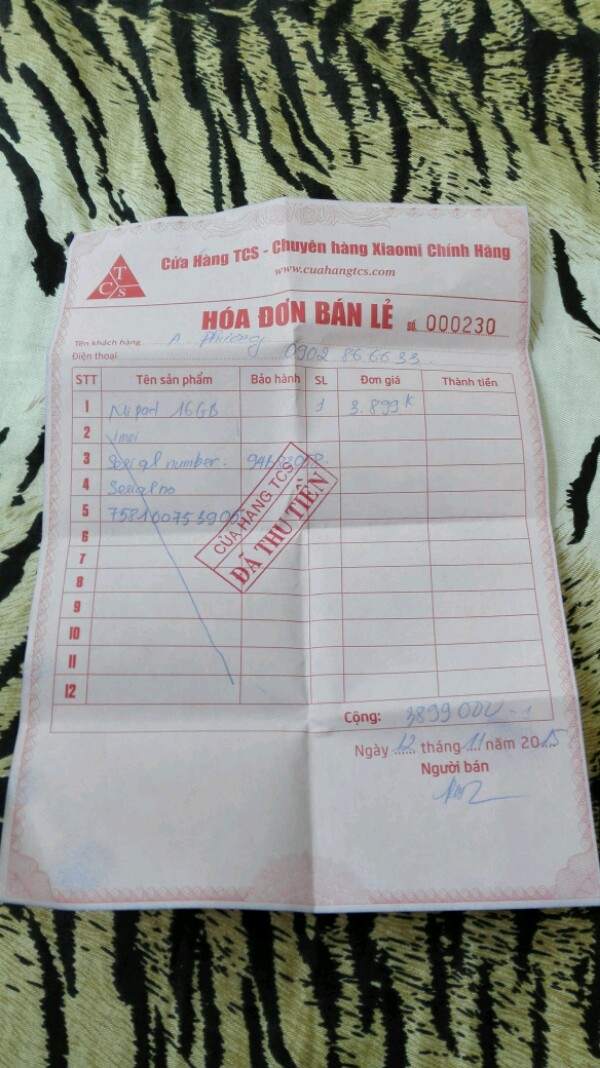 T
C S
Cửa Hàng TCS - Chuyên hàng Xiaomi Chính Hãng
www.cuahangtcs.com
HÓA ĐƠN BÁN LẺ Số 000230
Tên khách hàng A. Phương
Điện thoại 0902 866633
STT Tên sản phẩm Bảo hành SL Đơn giá Thành tiền
1 Mipad 16GB 1 3.899K
2 imei
3 Serial number.
4 Serial no
5
6
7
8
9
10
11
12
CỬA HÀNG TCS
ĐÃ THU TIỀN
Cộng: 3899000
Ngày 12 tháng 11 năm 2015
Người bán